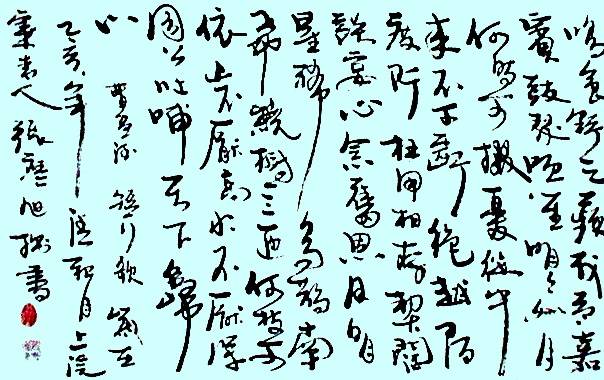 鸣食野之蘋我有嘉
賓鼓瑟吹笙明明如月
何時可掇憂從中
來不可斷絕越陌
度阡枉用相存契闊
談宴心念舊恩月明
星稀 烏鵲南
飛繞樹三匝何枝可
依山不厭高水不厭深
周公吐哺天下歸
心 曹孟德 短行歌 歲在
乙亥年 月上浣
人 張 旭 書